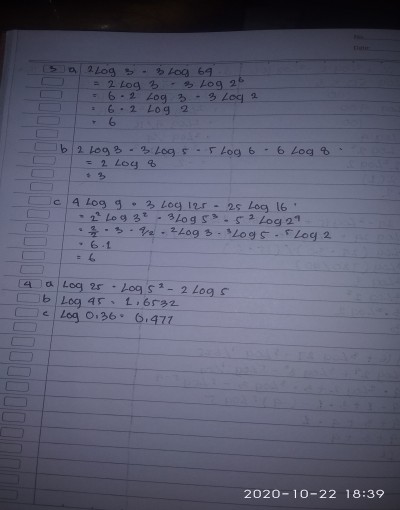 3 a 2 log 3 - 3 log 64
= 2 log 3 - 3 log 2⁶
= 6 · 2 log 3 - 3 log 2
= 6 · 2 log 2
= 6
b 2 log 3 - 3 log 5 - 5 log 6 - 6 log 8
= 2 log 8
= 3
c 4 log 9 - 3 log 125 - 25 log 16
= 2² log 3² - ³log 5³ - 5² log 2⁴
= 2/2 · 3 - 4/2 - ²log 3 - ³log 5 - ⁵log 2
= 6 · 1
= 6
4 a log 25 = log 5² = 2 log 5
b log 45 = 1,6532
c log 0,36 = 0,477
2020-10-22 18:39